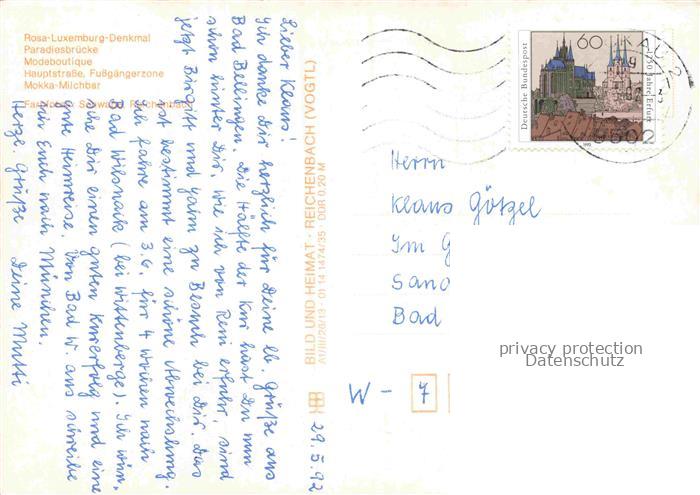 Rosa-Luxemburg-Denkmal
Paradiesbrücke
Modeboutique
Hauptstraße, Fußgängerzone
Mokka-Milchbar
BILD UND HEIMAT · REICHENBACH (VOGTL)
A1/III/26/13 01 14 1474/35 DDR 0,20 M
29.5.92
Lieber Klaus!
Ich danke Dir herzlich für Deine lb. Grüße aus
Bad Bellingen. Die Hälfte der Kur hast Du nun
schon hinter Dir. Wie ich von Reni erfuhr, sind
jetzt Birgitt und zu Besuch bei Dir. Das
ist bestimmt eine schöne Abwechslung.
Ich fahre am 3.6. für 4 Wochen nach
Bad Wilsnack (bei Wittenberge). Ich wün-
sche Dir einen guten Kurerfolg und eine
gute Heimreise. Von Bad W. aus schreibe
ich Euch nach München.
Herzl. Grüße Deine Mutti
Deutsche Bundespost
60
1250 Jahre Erfurt
9502
Herrn
Klaus Götzel
Im G
Sand
Bad
W - 7
privacy protection
Datenschutz